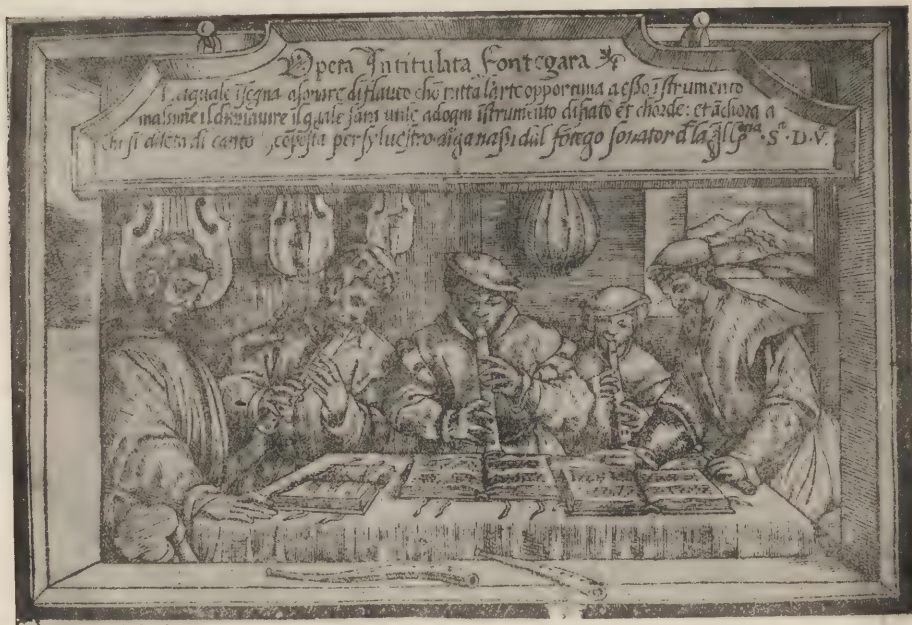 Opera Intitulata Fontegara
Laquale īsegna a sonare di flauto chō tutta l'arte opportuna a esso īstrumento
massime il diminuire il quale sara utile ad ogni īstrumento di fiato et chorde: et āchora a
chi si dileta di canto, cōposta per sylvestro di ganassi dal fontego sonator d la Ill.ma S.a D.V.a